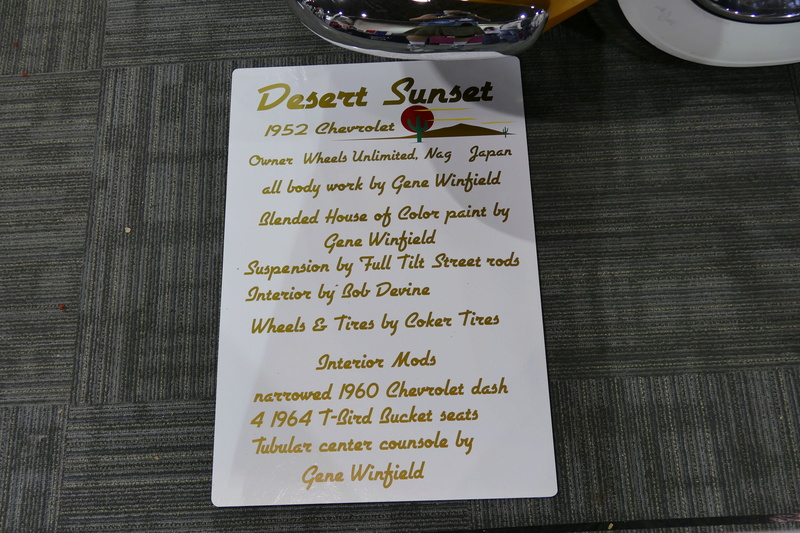 Desert Sunset
1952 Chevrolet
Owner Wheels Unlimited, Nag Japan
all body work by Gene Winfield
Blended House of Color paint by
Gene Winfield
Suspension by Full Tilt Street rods
Interior by Bob Devine
Wheels & Tires by Coker Tires
Interior Mods
narrowed 1960 Chevrolet dash
4 1964 T-Bird Bucket seats
Tubular center counsole by
Gene Winfield